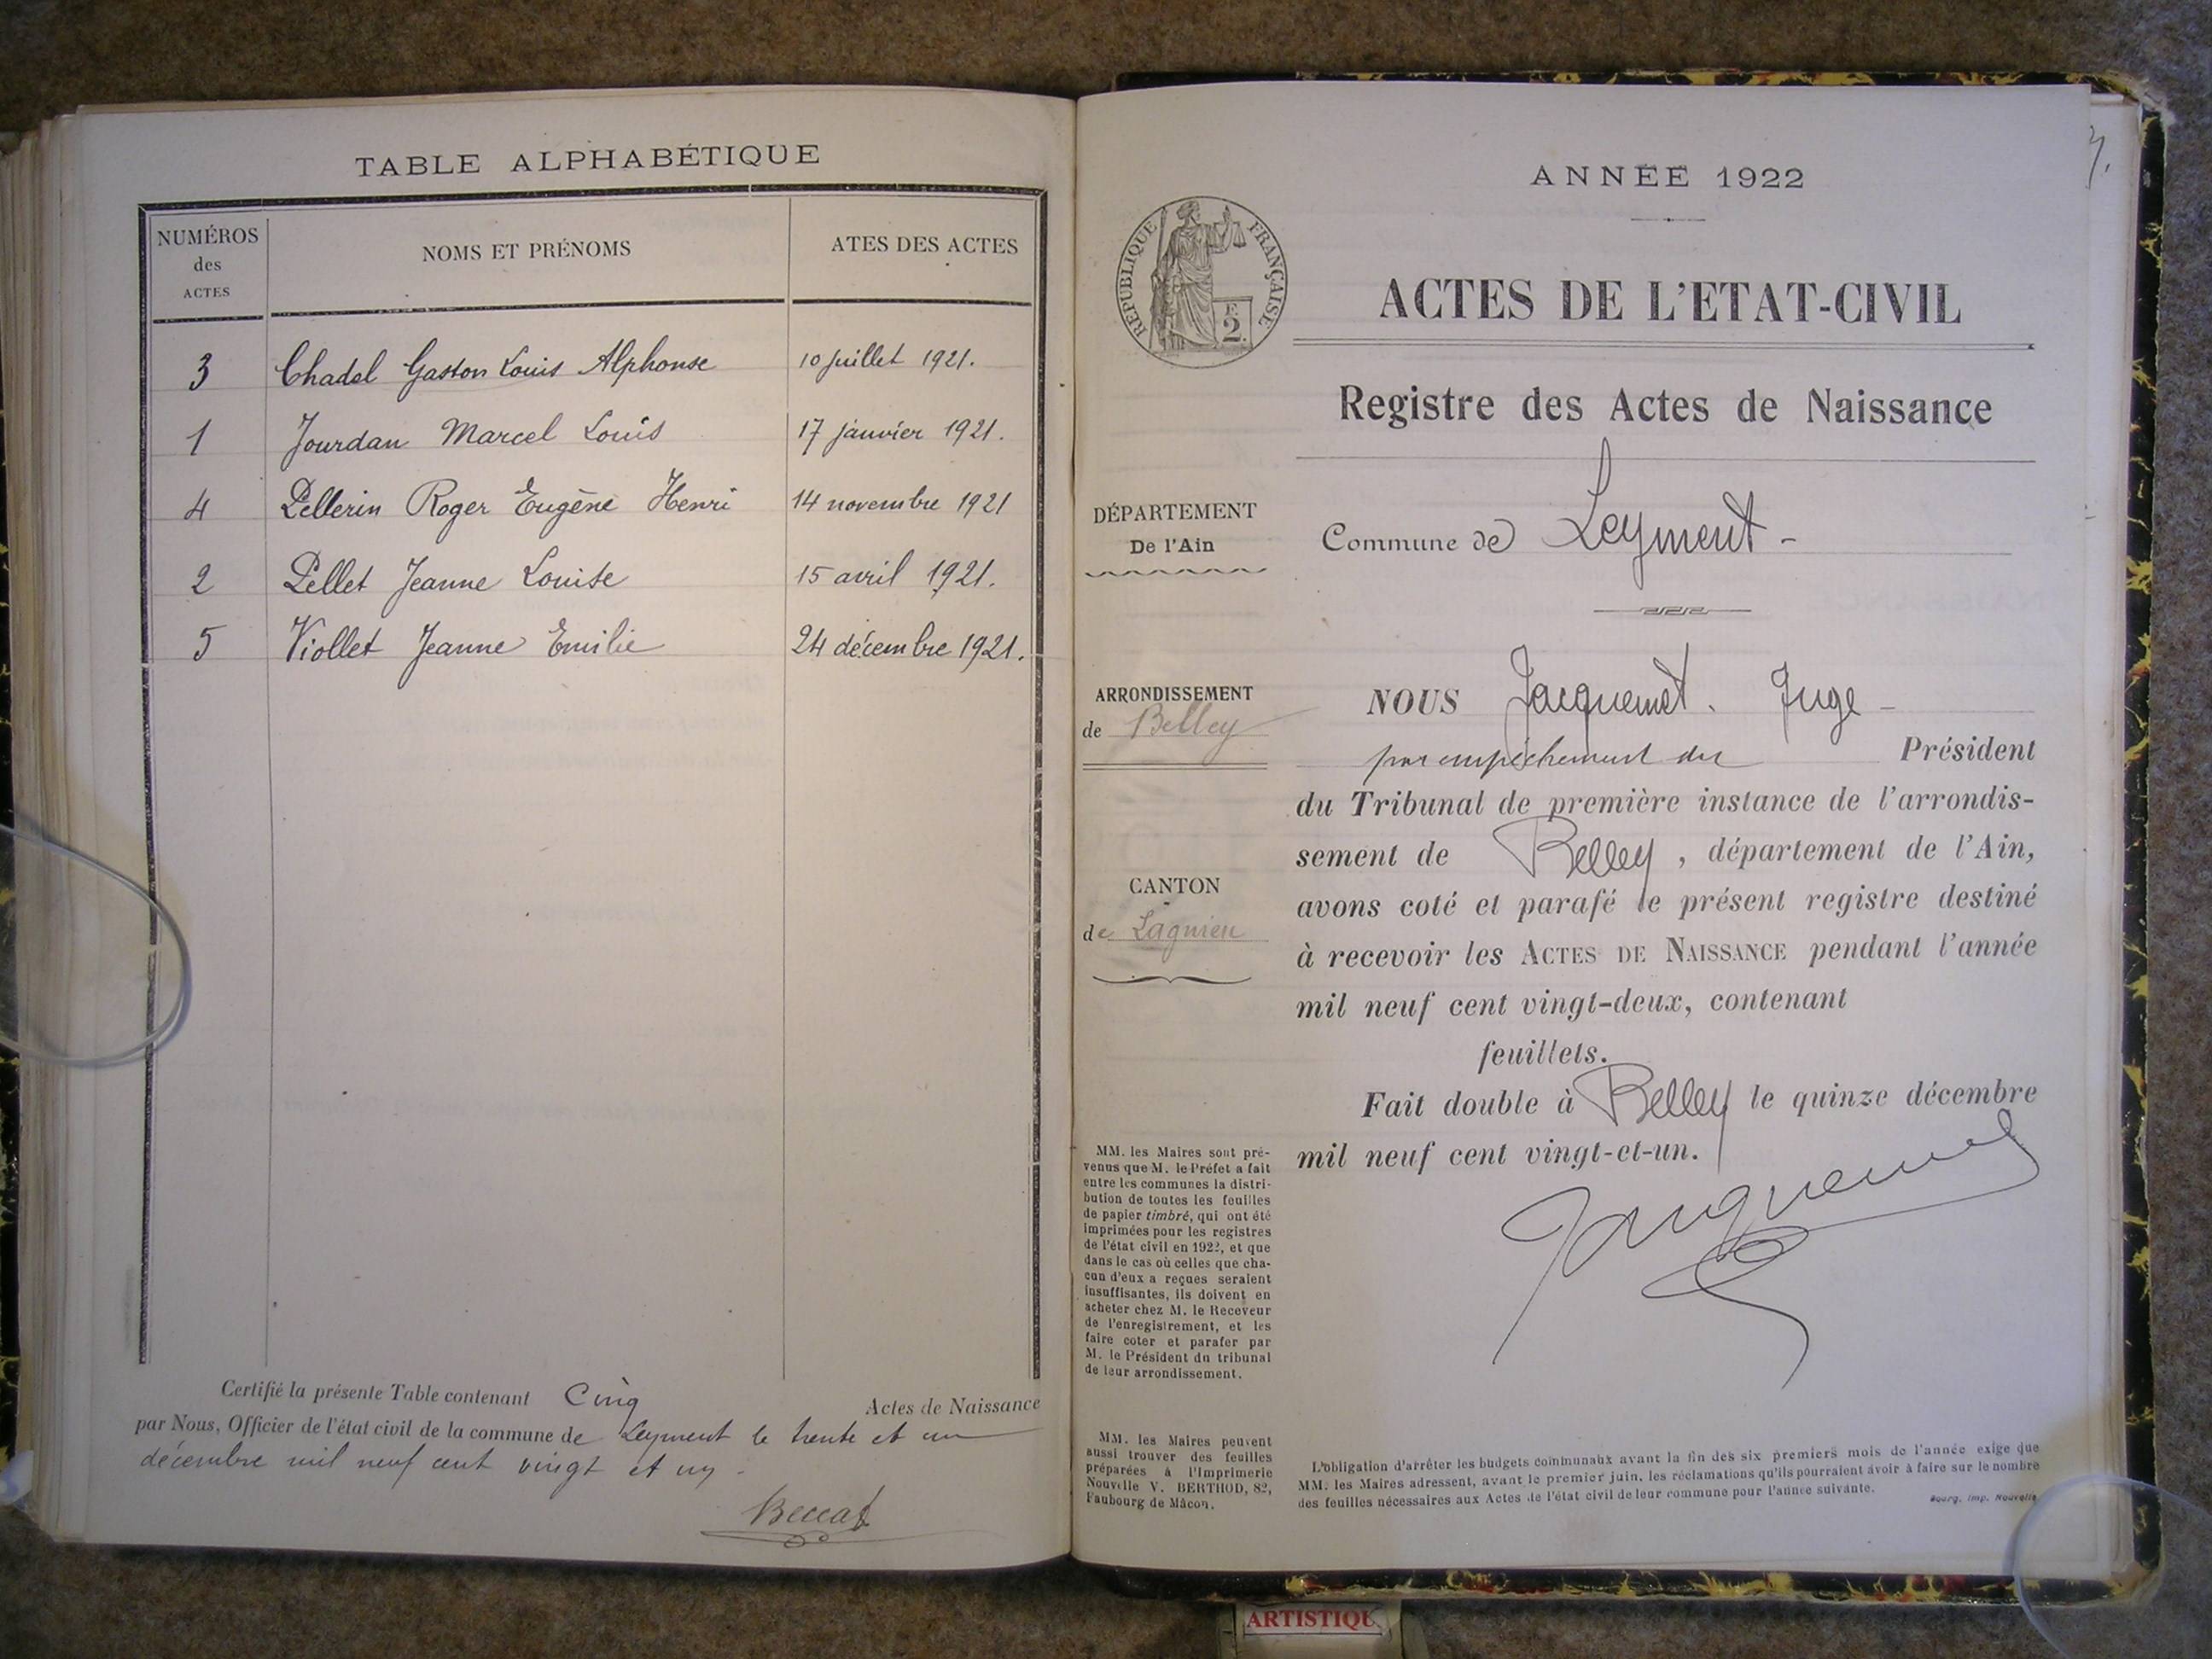 TABLE ALPHABÉTIQUE
NUMÉROS
des
ACTES
NOMS ET PRÉNOMS
ATES DES ACTES
3 Chadel Gaston Louis Alphonse 10 juillet 1921.
1 Jourdan Marcel Louis 17 janvier 1921.
4 Pellerin Roger Eugène Henri 14 novembre 1921
2 Pellet Jeanne Louise 15 avril 1921.
5 Viollet Jeanne Emilie 24 décembre 1921.
Certifié la présente Table contenant Cinq Actes de Naissance
par Nous, Officier de l'état civil de la commune de Leyment le trente et un
décembre mil neuf cent vingt et un -
Beccat
ANNÉE 1922
RÉPUBLIQUE FRANÇAISE
F
2.
ACTES DE L'ETAT-CIVIL
Registre des Actes de Naissance
DÉPARTEMENT
De l'Ain
Commune de Leyment -
ARRONDISSEMENT
de Belley
CANTON
de Lagnieu
NOUS Jacquemet. Juge -
par empêchement du Président
du Tribunal de première instance de l'arrondis-
sement de Belley, département de l'Ain,
avons coté et parafé le présent registre destiné
à recevoir les ACTES DE NAISSANCE pendant l'année
mil neuf cent vingt-deux, contenant
feuillets.
Fait double à Belley le quinze décembre
mil neuf cent vingt-et-un.
Jacquemet
MM. les Maires sont pré-
venus que M. le Préfet a fait
entre les communes la distri-
bution de toutes les feuilles
de papier timbré, qui ont été
imprimées pour les registres
de l'état civil en 1922, et que
dans le cas où celles que cha-
cun d'eux a reçues seraient
insuffisantes, ils doivent en
acheter chez M. le Receveur
de l'enregistrement, et les
faire coter et parafer par
M. le Président du tribunal
de leur arrondissement.
MM. les Maires peuvent
aussi trouver des feuilles
préparées à l'Imprimerie
Nouvelle V. BERTHOD, 82,
Faubourg de Mâcon.
L'obligation d'arrêter les budgets communaux avant la fin des six premiers mois de l'année exige que
MM. les Maires adressent, avant le premier juin, les réclamations qu'ils pourraient avoir à faire sur le nombre
des feuilles nécessaires aux Actes de l'état civil de leur commune pour l'année suivante.
Bourg, Imp. Nouvelle
ARTISTIQU